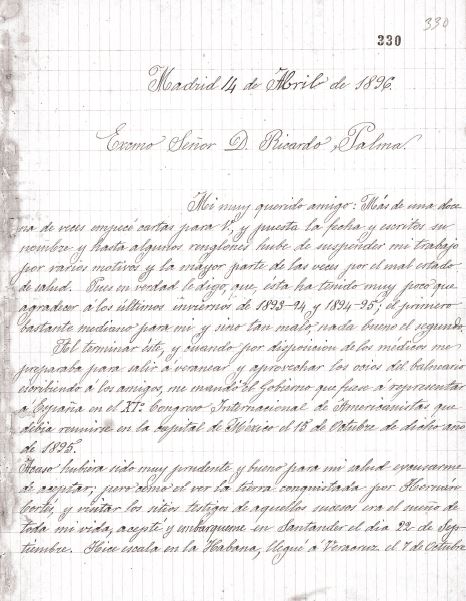 330
330
Madrid 14 de Abril de 1896.
Excmo Señor D. Ricardo Palma.
Mi muy querido amigo: Más de una doce
na de veces empecé cartas para V., y puesta la fecha y escritos su
nombre y hasta algunos renglones hube de suspender mi trabajo
por varios motivos y la mayor parte de las veces por el mal estado
de salud. Pues en verdad le digo, que, esta ha tenido muy poco que
agradecer á los últimos inviernos de 1893-94 y 1894-95; el primero
bastante mediano para mi y sino tan malo, nada bueno el segundo.
Al terminar éste, y cuando por disposicion de los médicos me
preparaba para salir á veranear y aprovechar los ocios del balneario
escribiendo á los amigos, me mandó el Gobierno que fuese á representar
á España en el XI.º Congreso Internacional de Americanistas que
debia reunirse en la capital de México el 15 de Octubre de dicho año
de 1895.
Acaso hubiera sido muy prudente y bueno para mi salud excusarme
de aceptar; pero como el ver la tierra conquistada por Hernán
Cortés, y visitar los sitios testigos de aquellos sucesos era el sueño de
toda mi vida, acepté y embarqueme en Santander el dia 22 de Sep-
tiembre. Hice escala en la Habana, llegue á Veracruz el 7 de Octubre